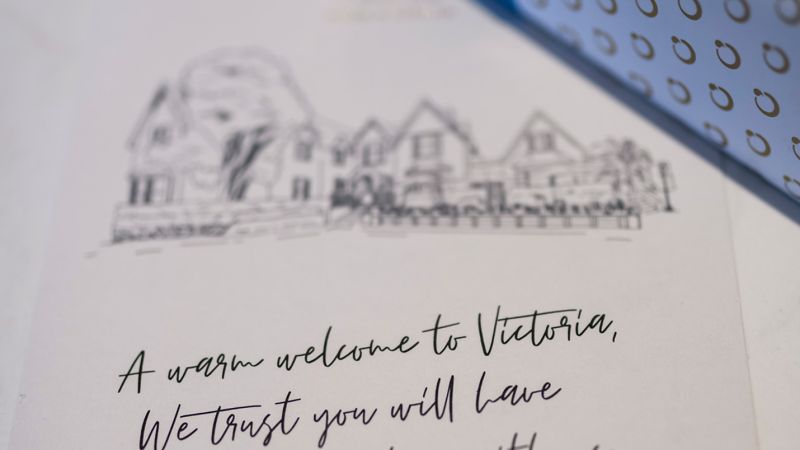 A warm welcome to Victoria,
We trust you will have